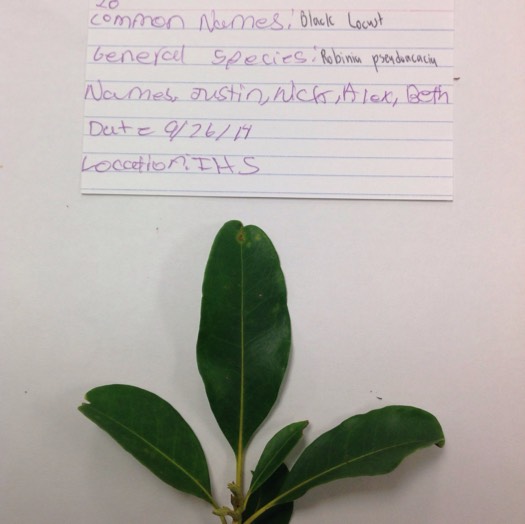 20
Common Names: Black Locust
General Species: Robinia pseudoacacia
Names, Justin, Nick, Alex, Beth
Date 9/26/14
Location: IHS